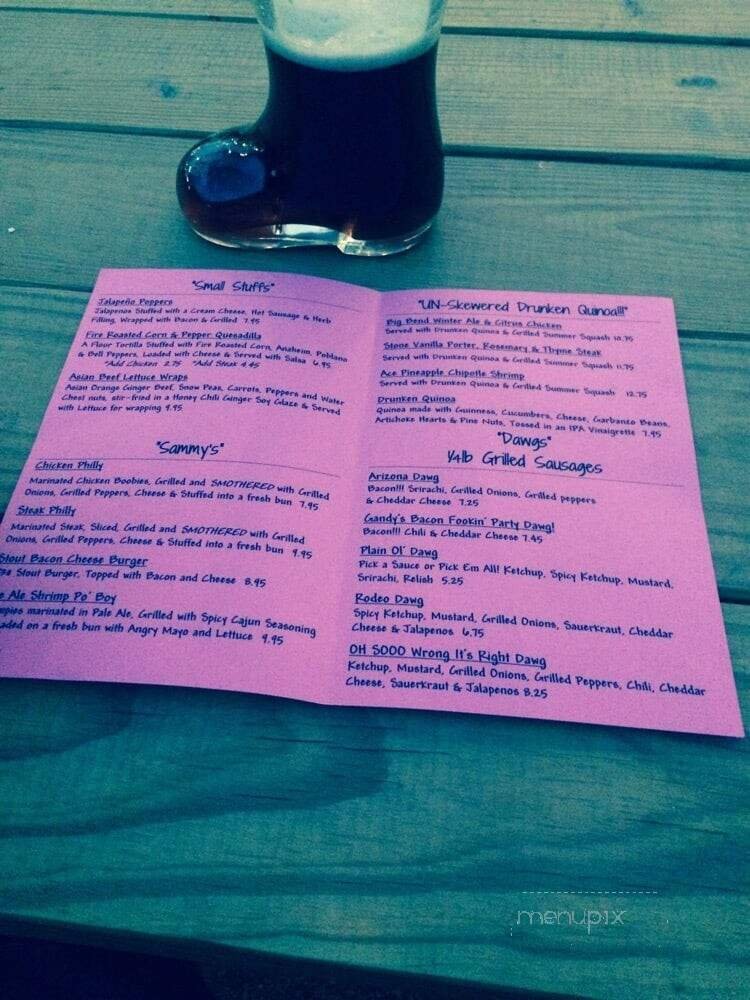 "Small Stuffs"
Jalapeño Poppers
Jalapenos Stuffed with a Cream Cheese, Hot Sausage & Herb
Filling, Wrapped with Bacon & Grilled 7.95
Fire Roasted Corn & Pepper Quesadilla
A Flour Tortilla Stuffed with Fire Roasted Corn, Anaheim, Poblano
& Bell Peppers, Loaded with Cheese & Served with Salsa 6.95
*Add Chicken 2.75 *Add Steak 4.45
Asian Beef Lettuce Wraps
Asian Orange Ginger Beef, Snow Peas, Carrots, Peppers and Water
Chest nuts, stir-fried in a Honey Chili Ginger Soy Glaze & Served
with Lettuce for wrapping 9.95
"Sammy's"
Chicken Philly
Marinated Chicken Boobies, Grilled and SMOTHERED with Grilled
Onions, Grilled Peppers, Cheese & Stuffed into a fresh bun 7.95
Steak Philly
Marinated Steak, Sliced, Grilled and SMOTHERED with Grilled
Onions, Grilled Peppers, Cheese & Stuffed into a fresh bun 9.95
Stout Bacon Cheese Burger
Stout Burger, Topped with Bacon and Cheese 8.95
Ale Shrimp Po' Boy
marinated in Pale Ale, Grilled with Spicy Cajun Seasoning
on a fresh bun with Angry Mayo and Lettuce 9.95
"UN-Skewered Drunken Quinoa!!!"
Big Bend Winter Ale & Citrus Chicken
Served with Drunken Quinoa & Grilled Summer Squash 10.75
Stone Vanilla Porter, Rosemary & Thyme Steak
Served with Drunken Quinoa & Grilled Summer Squash 11.75
Ace Pineapple Chipotle Shrimp
Served with Drunken Quinoa & Grilled Summer Squash 12.75
Drunken Quinoa
Quinoa made with Guinness, Cucumbers, Cheese, Garbanzo Beans,
Artichoke Hearts & Pine Nuts, Tossed in an IPA Vinaigrette 7.95
"Dawgs"
1/4lb Grilled Sausages
Arizona Dawg
Bacon!!! Srirachi, Grilled Onions, Grilled peppers
& Cheddar Cheese 7.25
Gandy's Bacon Fookin' Party Dawg!
Bacon!!! Chili & Cheddar Cheese 7.45
Plain Ol' Dawg
Pick a Sauce or Pick Em All! Ketchup, Spicy Ketchup, Mustard,
Srirachi, Relish 5.25
Rodeo Dawg
Spicy Ketchup, Mustard, Grilled Onions, Sauerkraut, Cheddar
Cheese & Jalapenos 6.75
OH SOOO Wrong It's Right Dawg
Ketchup, Mustard, Grilled Onions, Grilled Peppers, Chili, Cheddar
Cheese, Sauerkraut & Jalapenos 8.25
menupix